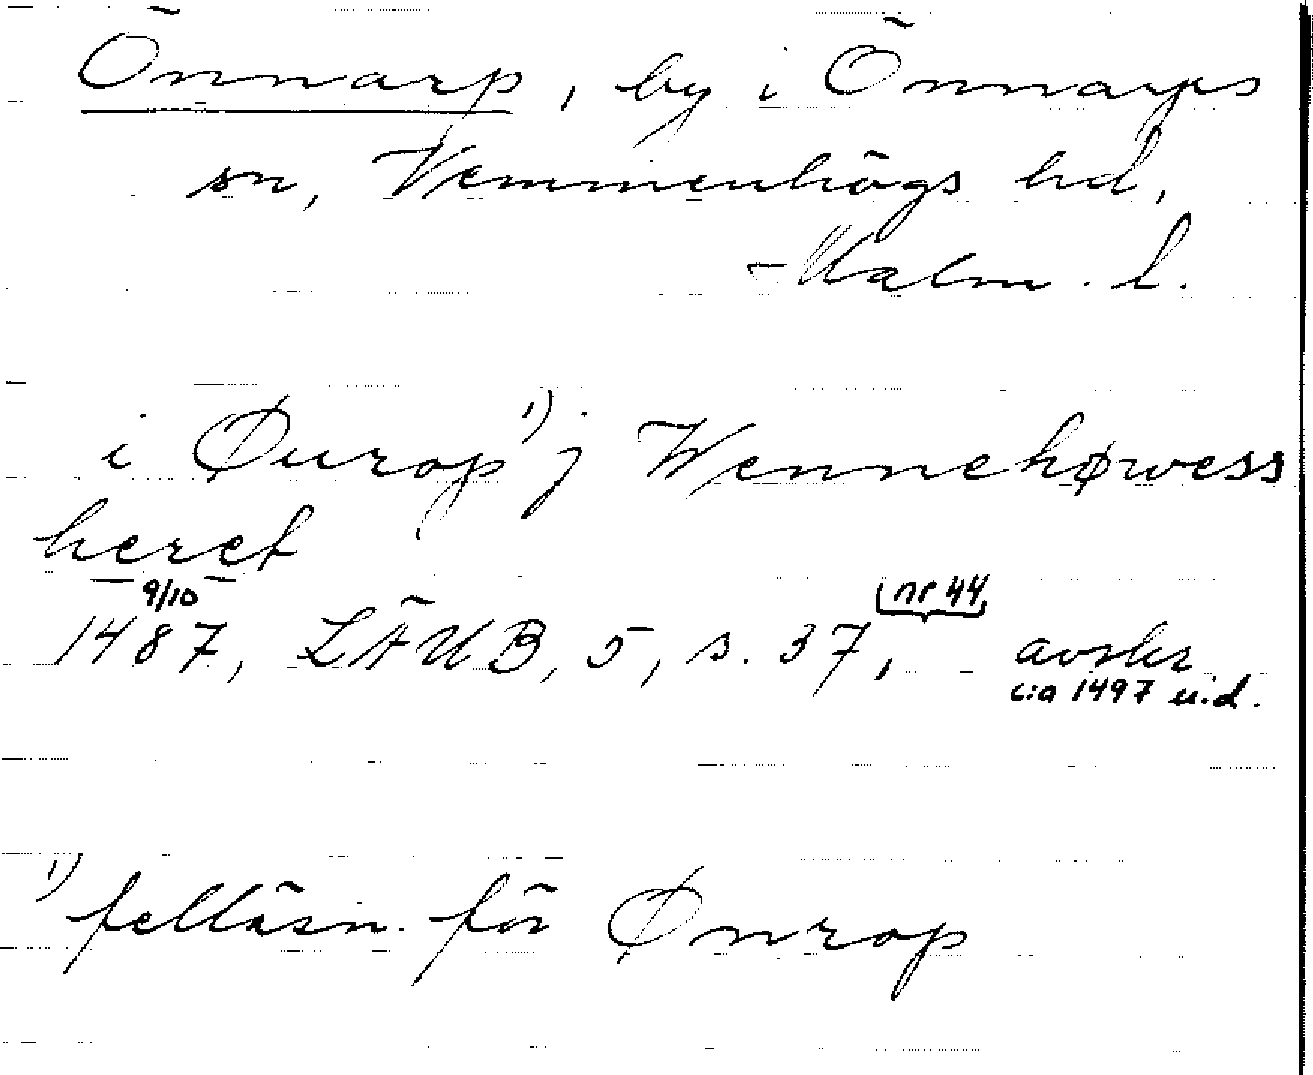 Önnarp, by i Önnarps
sn, Vemmenhögs hd,
Malm. l.
i Øurop¹⁾ j Wennehøwess
heret
9/10
1487, LÄUB, 5, s. 37, nr 44, avskr
c:a 1497 u.d.
¹⁾ felläsn. för Ønrop